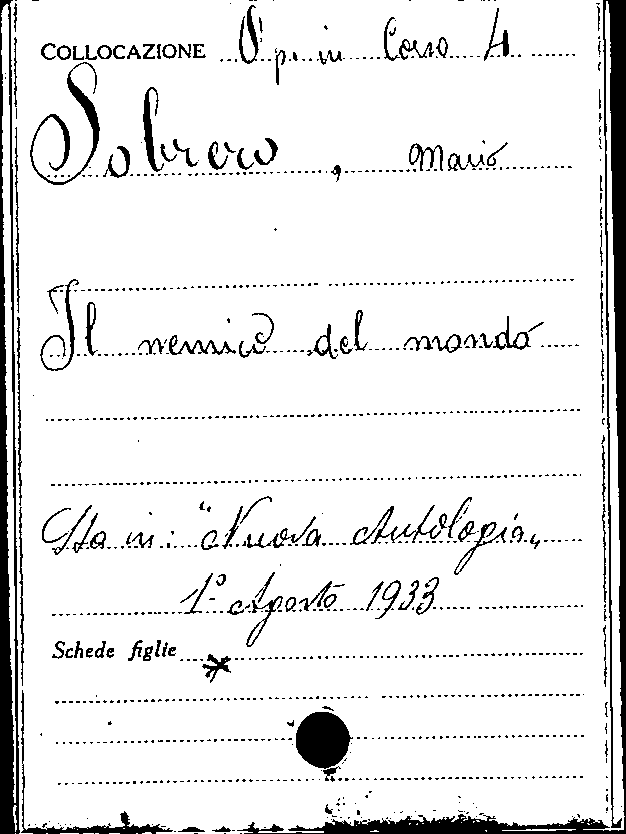 COLLOCAZIONE Op. in Corso 4
Sobrero, Mario
Il nemico del mondo
Sta in: "Nuova Antologia„
1º Agosto 1933
Schede figlie *